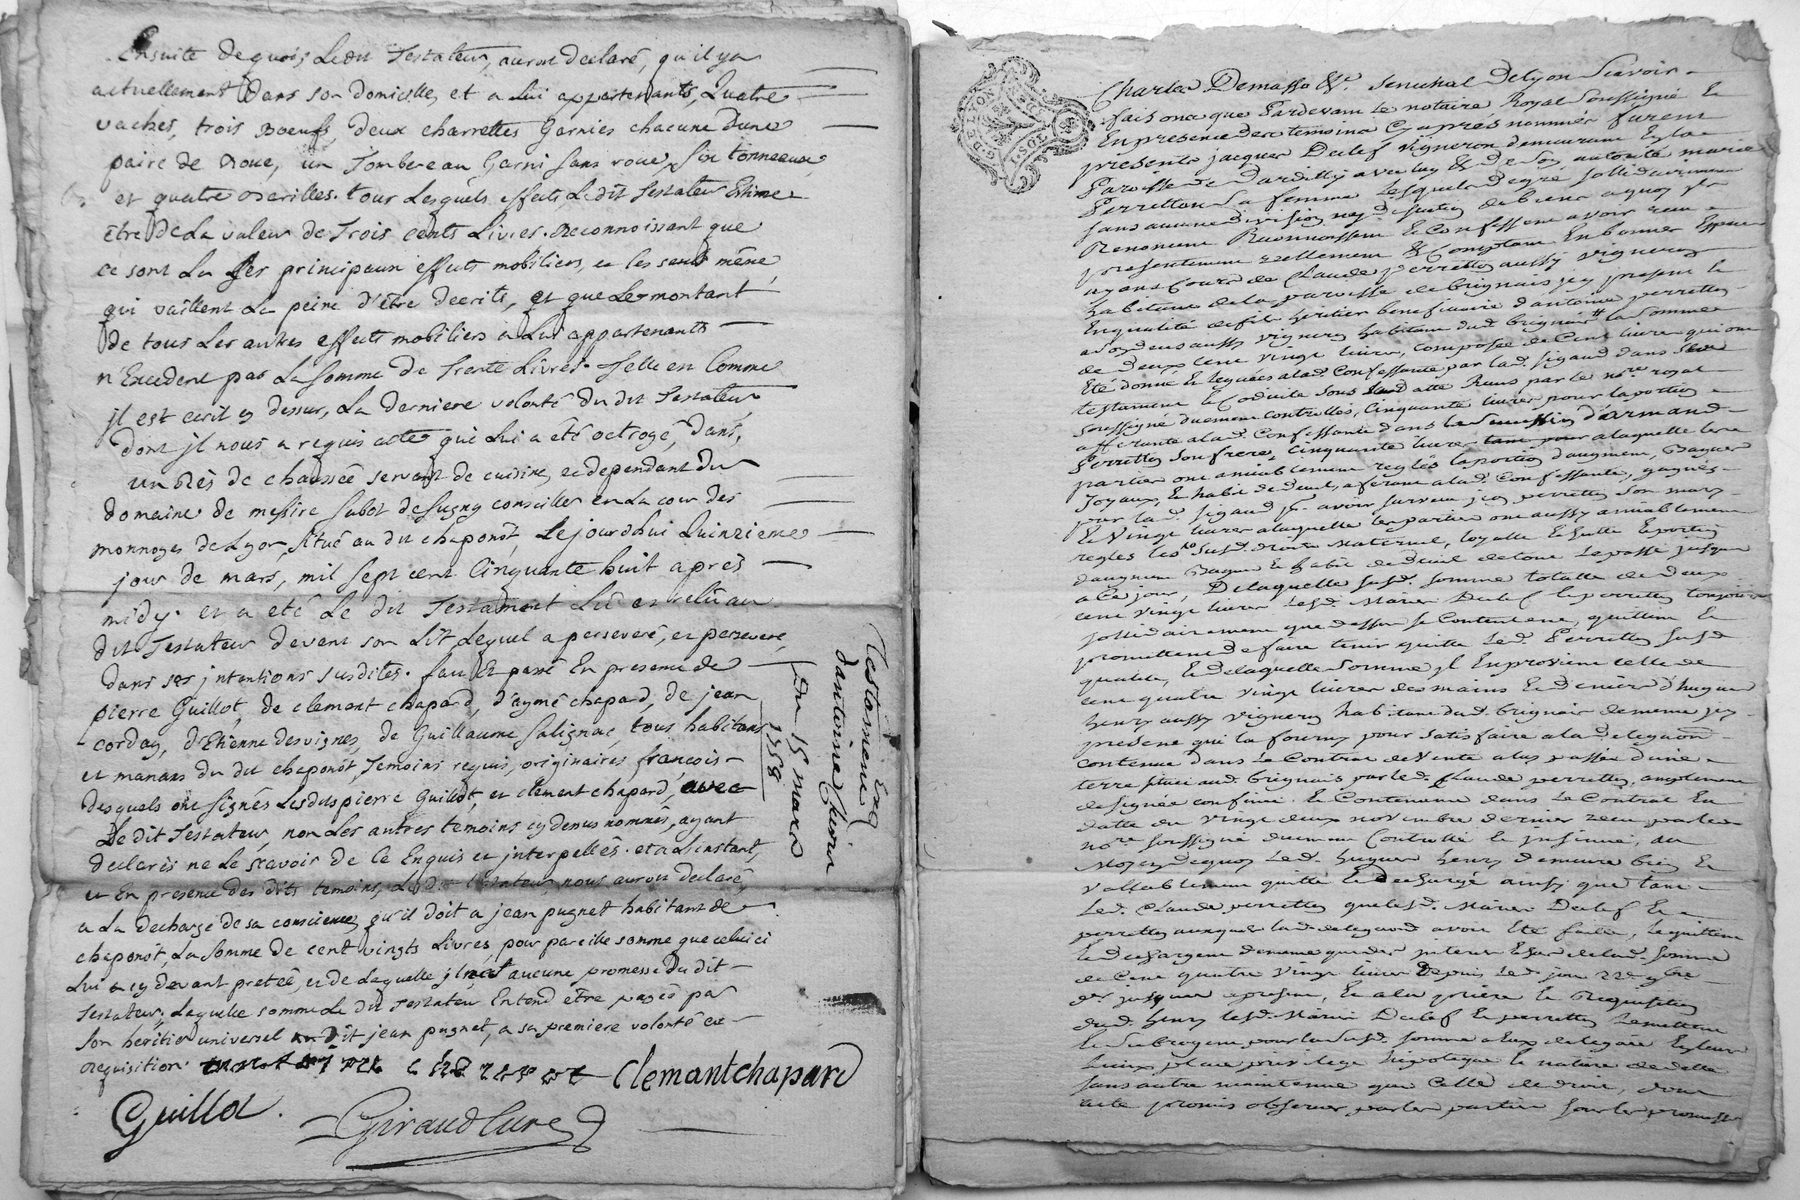 Ensuite de quoi, Ledit Testateur, auroit declaré, qu'il y a
actuellement Dans son domicille, et a Lui appartenants, Quatre
vaches, trois Boeufs, deux charrettes Garnies chacune D'une
paire de Roue, un Tombereau Garni sans roues, Six tonneaux,
et quatre Tous Lesquels effets, Ledit Testateur Estime
être De La valeur de Trois cents Livres. Reconnoissant que
ce sont La Les principaux effets mobiliers, et les seuls même,
qui vaillent La peine d'être decrits, et que Le montant
de tous Les autres effets mobiliers a Lui appartenants
n'Excedent pas La somme de Trente Livres. Telle en Comme
jl est ecrit cy dessus, La derniere volonté du dit Testateur
dont jl nous a requis acte, qui Lui a été octroyé, dans,
un Rès de chaussée servant de cuisine, et dependant du
domaine de messire Sabot de Sugny conseiller en La cour des
monnoyes de Lyon, situé au dit chaponôt, Le jourd'hui Quinzieme
jour de mars, mil sept cent Cinquante huit après
midy. et a été Le dit Testament Lû et relû au
dit Testateur devant son Lit Lequel a perseveré, et persevere,
dans ses jntentions susdites. fait Et passé En presence de
pierre Guillot, de clemant chapard, d'aymé chapard, de jean
corday, d'Etienne desvignes, de Guillaume Salignac, tous habitans
et manans du dit chaponôt, Temoins requis, originaires françois
desquels ont signés Lesdits pierre Guillot, et clement chapard, avec
Le dit Testateur, non Les autres temoins cy dessus nommés, ayant
declarés ne Le sçavoir de ce Enquis et jnterpellés. et a L'instant,
et En presence des dits temoins, Ledit Testateur, nous auroit declaré,
a La decharge de sa conscience, qu'il doit a jean pugnet habitant de
chaponôt, La somme de cent vingts Livres, pour pareille somme que celui ci
Lui a cy devant pretée, et de Laquelle jl n'est aucune promesse Du dit
Testateur; Laquelle somme Le dit Testateur Entend être payée par
son héritier universel au Dit jean pugnet, a sa premiere volonté et
requisition.
Clemantchapard
Guillot. Giraud Curé
Testament
d'antoine
Du 15 mars
1758
G. DE LYON
Charles Demasso &c. Senechal de Lyon Scavoir
faisons que Pardevant le notaire Royal Soussigné Et
En presence des temoins Cy après nommés furent
presents jacques Dutef vigneron demeurant En la
Paroisse de Dardilly avec luy Et de son autorité marie
Perretton sa femme, lesquels de gré sollidairement
sans aucune division ny discution de biens a quoy ils
Renoncent Reconnoissent Et Confessent avoir receu
presentement reellement Et Comptant En bonnes Especes
ayant Cours de Claude perretton aussy vigneron
habitant de la paroisse de brignais jcy present Et
En qualité de fils heritier beneficiaire d'antoine perretton
vivant aussy vigneron habitant dud. brignais la somme
de Deux Cent vingt livres, composée de Cent livres qui ont
Eté donné Et leguées a lad. Confessante par lad. sigaud dans son
testament Et Codicille sous leur datte Reçus par le nore royal
soussigné duement controllés, Cinquante livres pour la portion
afferante a lad. Confessante dans la succession d'armand
Perretton son frere, Cinquante livres a laquelle les
parties ont amiablement reglés la portion d'augment, Bagues
Joyaux, Et habit de deuil, aferant a lad. Confessante, gagnés
par lad. sigaud pr. avoir survecu jean perretton son mary
Et Vingt livres a laquelle les parties ont aussy amiablement
regles les susd. droits Maternel,
d'augment Bagues Et habit de deuil de tout le passé jusques
a Ce jour, De laquelle susd. somme totalle de deux
cent vingt livres lesd. Mariés Dutef Et perretton toujours
sollidairement que dessus se Contentent, quittent Et
promettent de faire tenir quitte led. Perretton susd.
qualité, Et de laquelle somme jl En provient celle de
cent quatre vingt livres des mains Et deniers d'hugues
henry aussy vigneron habitant dud. brignais de meme jcy
present qui la fourny pour satisfaire a la delegaôn
contenue dans Le Contrat de Vente a luy passée d'une
terre située aud. brignais par led. Claude perretton, amplement
designée confinée Et Contenue dans Le Contrat En
datte du vingt deux novembre dernier reçu par le
nore soussigné duement Controllé Et jnsinué, au
Moyen de quoy led. hugues henry demeure bien Et
Vallablement quitte Et dechargé ainsy que tant
led. Claude perretton que lesd. Mariés Dutef Et
perretton auxquels lad. delegaôn avoit Eté faite, le quittent
Et dechargent de meme que des jnterets Echus de lad. somme
de Cent quatre vingt livres Depuis led. jour 22e 9bre
der jusques a present, Et a la priere Et Requisition
dud. henry lesd. Mariés Dutef Et perretton le mettent
Et subrogent pour la susd. somme a eux deleguée En leur
lieux place privilege hipoteque Et nature de dette
sans autre maintenue que Celle de droit, dont
acte promis observer par les parties sous les promesses